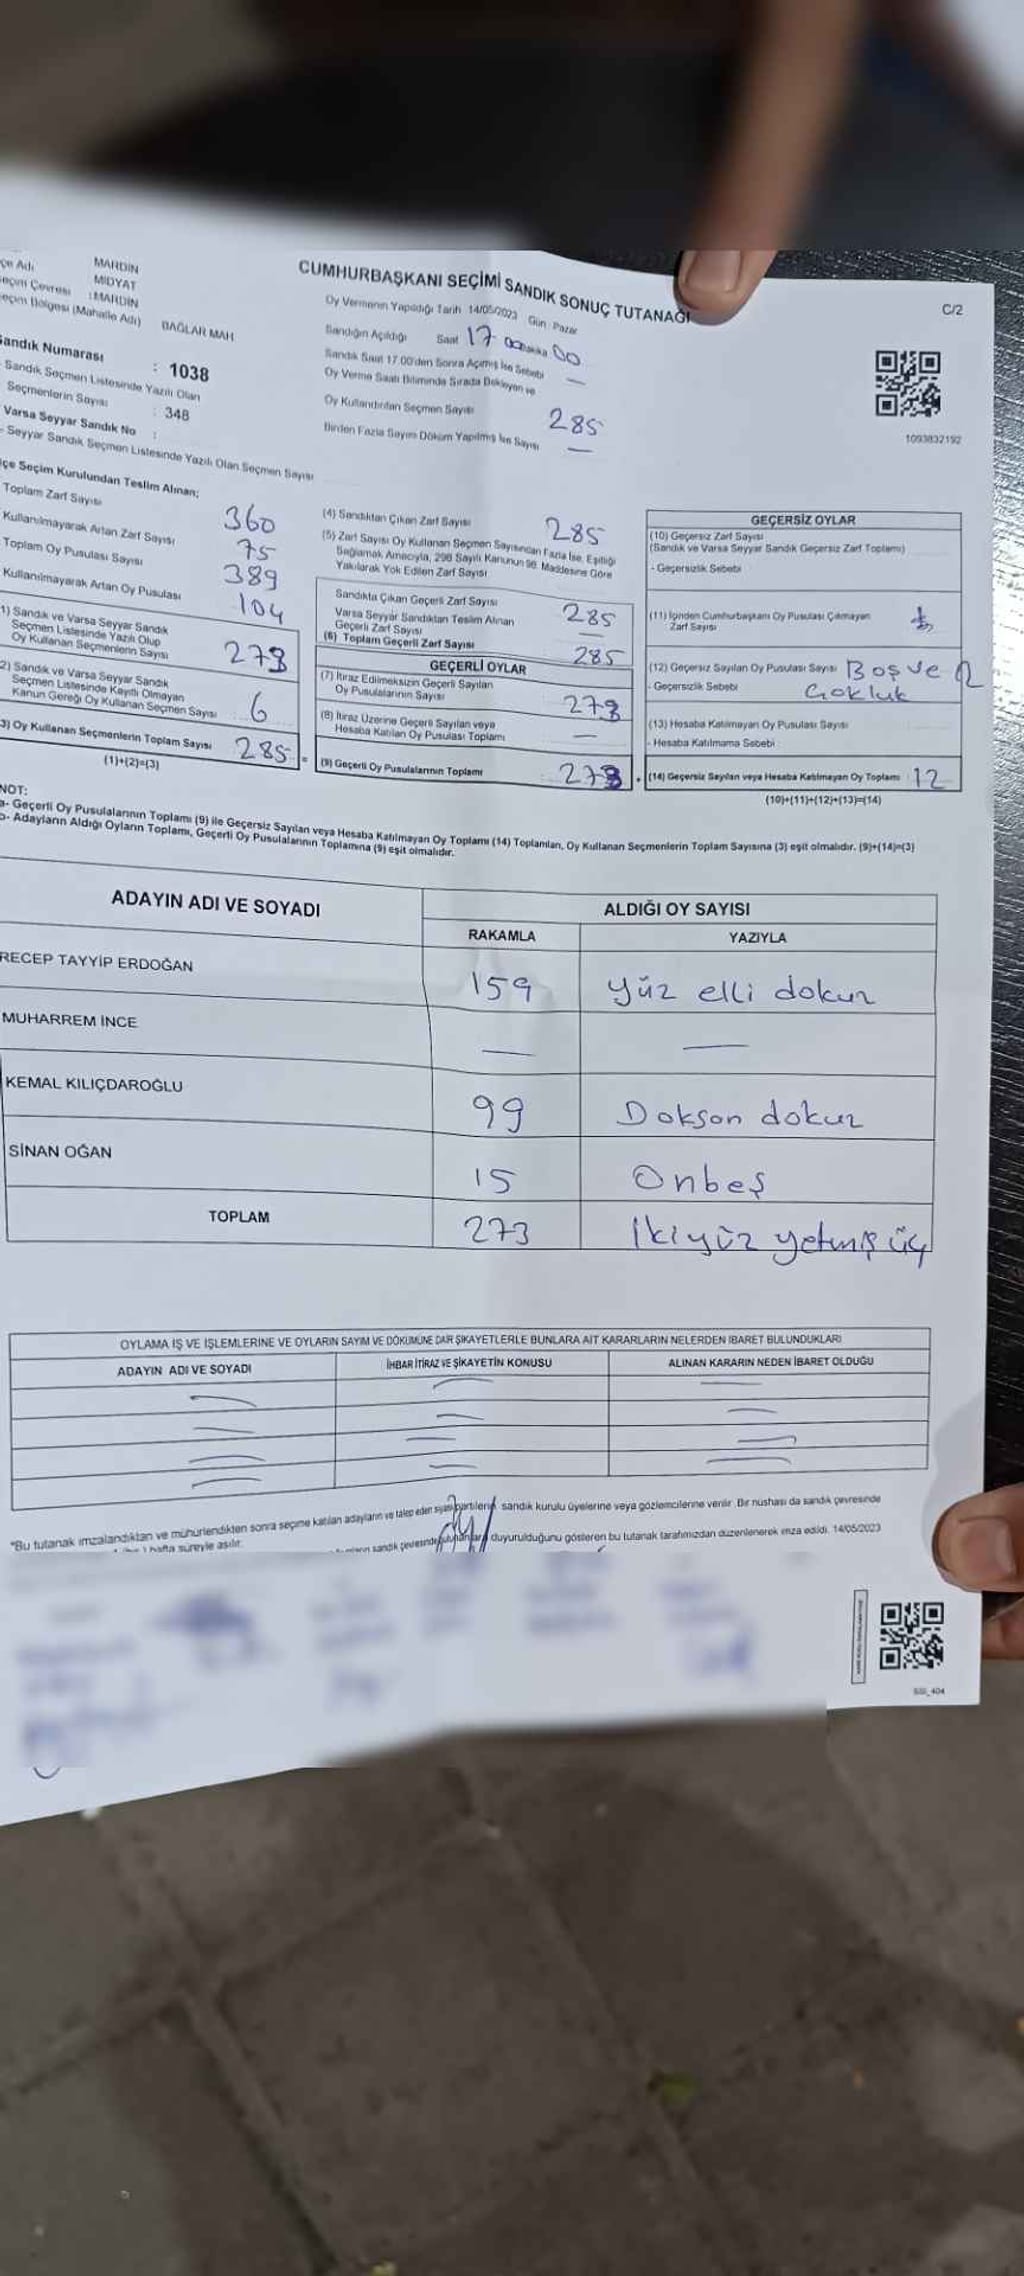 CUMHURBAŞKANI SEÇİMİ SANDIK SONUÇ TUTANAĞI
C/2
çe Adı MARDİN
MİDYAT
eçim Çevresi : MARDİN
eçim Bölgesi (Mahalle Adı) BAĞLAR MAH
andık Numarası : 1038
Sandık Seçmen Listesinde Yazılı Olan
Seçmenlerin Sayısı : 348
Varsa Seyyar Sandık No :
- Seyyar Sandık Seçmen Listesinde Yazılı Olan Seçmen Sayısı
Oy Vermenin Yapıldığı Tarih 14/05/2023 Gün : Pazar
Sandığın Açıldığı Saat 17 00 Dakika 00
Sandık Saat 17.00'den Sonra Açımış İse Sebebi —
Oy Verme Saati Bitiminde Sırada Bekleyen ve
Oy Kullandırılan Seçmen Sayısı 285
Birden Fazla Sayım Döküm Yapılmış İse Sayısı —
1093832192
çe Seçim Kurulundan Teslim Alınan;
Toplam Zarf Sayısı 360
Kullanılmayarak Artan Zarf Sayısı 75
Toplam Oy Pusulası Sayısı 389
Kullanılmayarak Artan Oy Pusulası 104
1) Sandık ve Varsa Seyyar Sandık
Seçmen Listesinde Yazılı Olup
Oy Kullanan Seçmenlerin Sayısı 279
2) Sandık ve Varsa Seyyar Sandık
Seçmen Listesinde Kayıtlı Olmayan
Kanun Gereği Oy Kullanan Seçmen Sayısı 6
3) Oy Kullanan Seçmenlerin Toplam Sayısı 285 =
(1)+(2)=(3)
(4) Sandıktan Çıkan Zarf Sayısı 285
(5) Zarf Sayısı Oy Kullanan Seçmen Sayısından Fazla İse, Eşitliği
Sağlamak Amacıyla, 298 Sayılı Kanunun 98. Maddesine Göre
Yakılarak Yok Edilen Zarf Sayısı
Sandıkta Çıkan Geçerli Zarf Sayısı 285
Varsa Seyyar Sandıktan Teslim Alınan
Geçerli Zarf Sayısı —
(6) Toplam Geçerli Zarf Sayısı 285
GEÇERLİ OYLAR
(7) İtiraz Edilmeksizin Geçerli Sayılan
Oy Pusulalarının Sayısı 273
(8) İtiraz Üzerine Geçerli Sayılan veya
Hesaba Katılan Oy Pusulası Toplamı —
(9) Geçerli Oy Pusulalarının Toplamı : 273 +
GEÇERSİZ OYLAR
(10) Geçersiz Zarf Sayısı
(Sandık ve Varsa Seyyar Sandık Geçersiz Zarf Toplamı)
- Geçersizlik Sebebi
(11) İçinden Cumhurbaşkanı Oy Pusulası Çıkmayan
Zarf Sayısı
(12) Geçersiz Sayılan Oy Pusulası Sayısı Boş ve
- Geçersizlik Sebebi Çokluk
(13) Hesaba Katılmayan Oy Pusulası Sayısı
- Hesaba Katılmama Sebebi
(14) Geçersiz Sayılan veya Hesaba Katılmayan Oy Toplamı : 12
(10)+(11)+(12)+(13)=(14)
NOT:
a- Geçerli Oy Pusulalarının Toplamı (9) ile Geçersiz Sayılan veya Hesaba Katılmayan Oy Toplamı (14) Toplamları, Oy Kullanan Seçmenlerin Toplam Sayısına (3) eşit olmalıdır. (9)+(14)=(3)
b- Adayların Aldığı Oyların Toplamı, Geçerli Oy Pusulalarının Toplamına (9) eşit olmalıdır.
ADAYIN ADI VE SOYADI
ALDIĞI OY SAYISI
RAKAMLA YAZIYLA
RECEP TAYYİP ERDOĞAN 159 Yüz elli dokuz
MUHARREM İNCE — —
KEMAL KILIÇDAROĞLU 99 Dokson dokuz
SİNAN OĞAN 15 Onbeş
TOPLAM 273 İkiyüz yetmiş üç
OYLAMA İŞ VE İŞLEMLERİNE VE OYLARIN SAYIM VE DÖKÜMÜNE DAİR ŞİKAYETLERLE BUNLARA AİT KARARLARIN NELERDEN İBARET BULUNDUKLARI
ADAYIN ADI VE SOYADI İHBAR İTİRAZ VE ŞİKAYETİN KONUSU ALINAN KARARIN NEDEN İBARET OLDUĞU
*Bu tutanak imzalandıktan ve mühürlendikten sonra seçime katılan adayların ve talep eden siyasi partilerin sandık kurulu üyelerine veya gözlemcilerine verilir. Bir nüshası da sandık çevresinde
hafta süreyle asılır. sandık çevresinde duyurulduğunu gösteren bu tutanak tarafımızdan düzenlenerek imza edildi. 14/05/2023